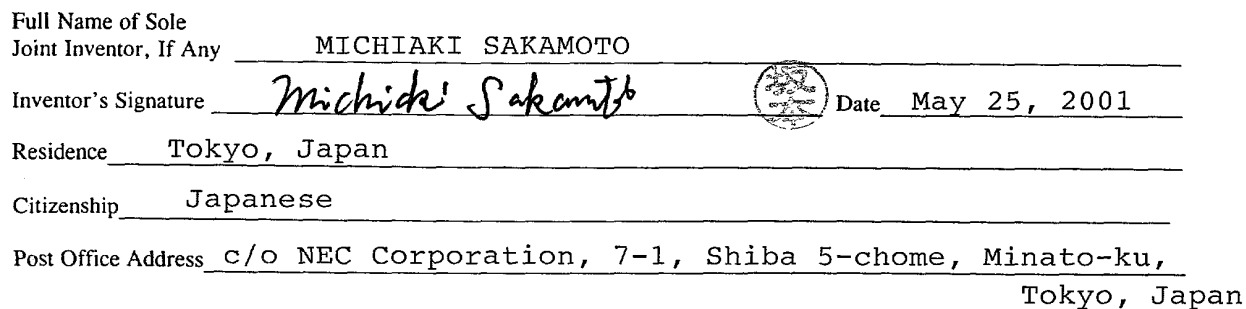 Full Name of Sole
Joint Inventor, If Any MICHIAKI SAKAMOTO
Inventor's Signature Michiaki Sakamoto Date May 25, 2001
Residence Tokyo, Japan
Citizenship Japanese
Post Office Address c/o NEC Corporation, 7-1, Shiba 5-chome, Minato-ku,
Tokyo, Japan